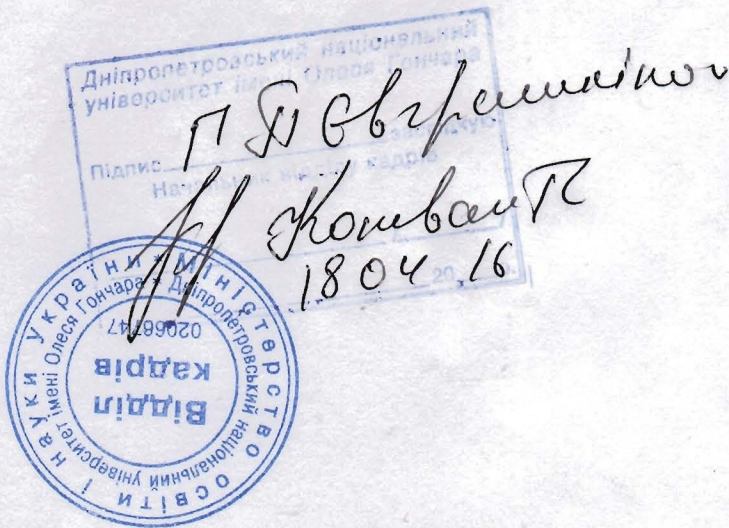 Дніпропетровський національний
університет імені Олеся Гончара
П П Євграшкіної
Підпис засвідчую
Начальник відділу кадрів
18 04 20 16
Міністерство освіти і науки України
Дніпропетровський національний університет імені Олеся Гончара
02066747
Відділ
кадрів